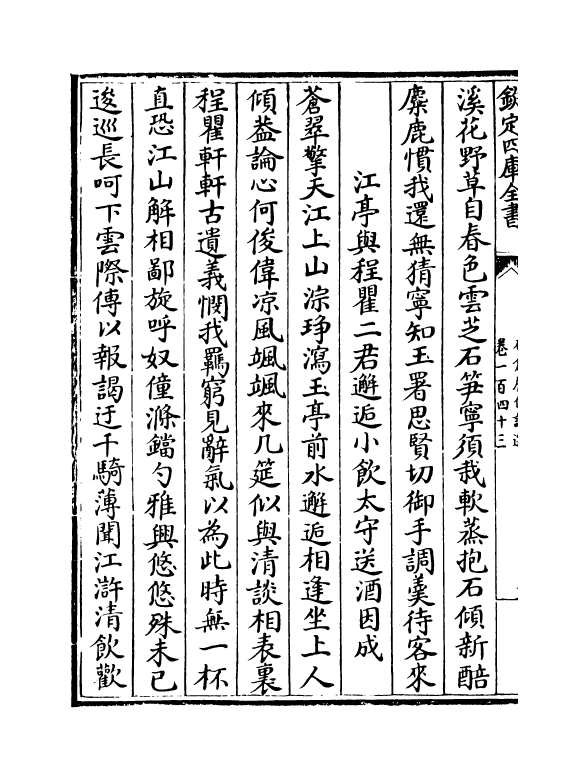 欽定四庫全書
卷一百四十三
溪花野草自春色雲芝石笋寧須栽軟蒸抱石傾新醅
麋鹿慣我還無猜寧知玉署思賢切御手調羹待客來
江亭與程瞿二君邂逅小飲太守送酒因成
蒼翠擎天江上山淙琤瀉玉亭前水邂逅相逢坐上人
傾葢論心何俊偉凉風颯颯來几筵似與清談相表裏
程瞿軒軒古遺義憫我羈窮見辭氣以為此時無一杯
直恐江山解相鄙旋呼奴僮滌鐺勺雅興悠悠殊未已
逡巡長呵下雲際傳以報謁迂千騎薄聞江滸清飲歡